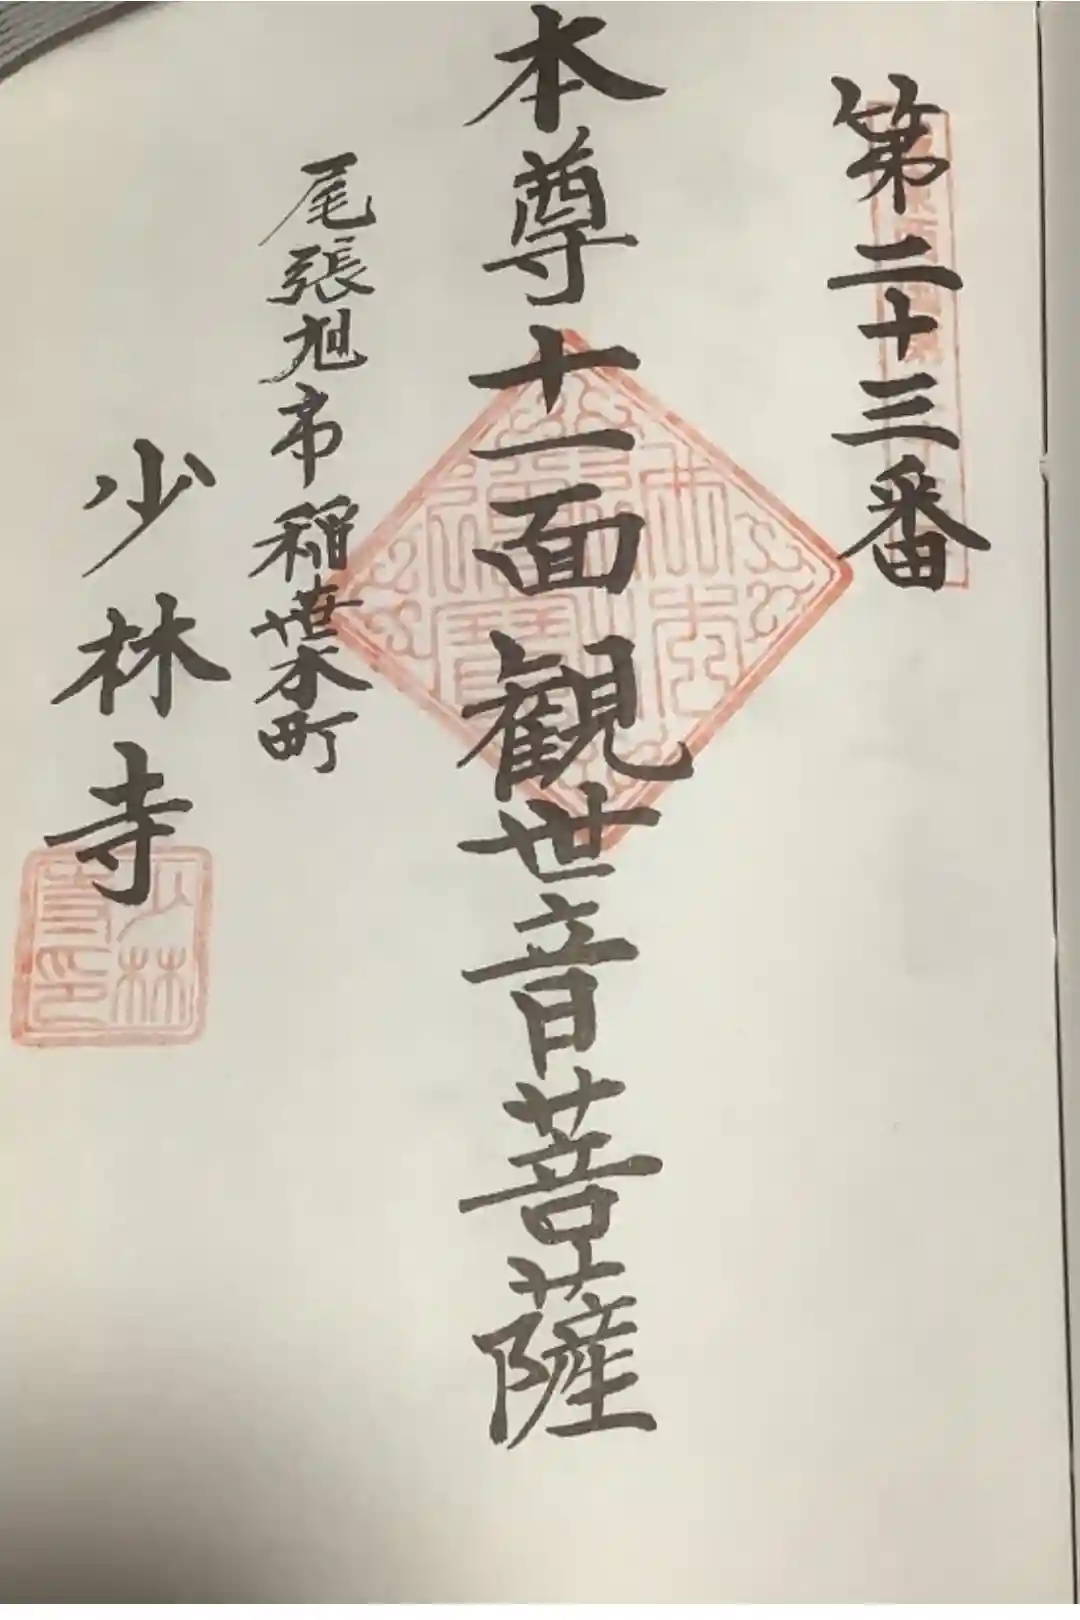 第二十三番
本尊十一面観世音菩薩
尾張旭市稲葉町
少林寺
少林
寺印